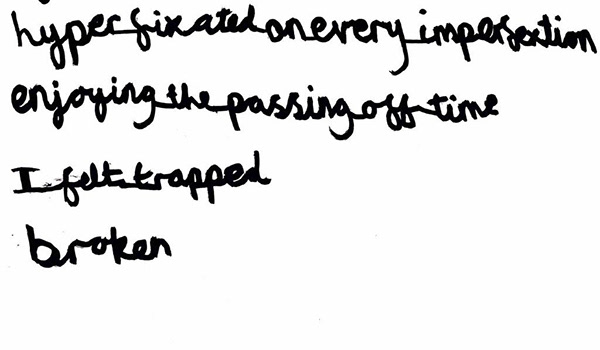 hyperfixated on every imperfextion
enjoying the passing off time
I felt trapped
broken